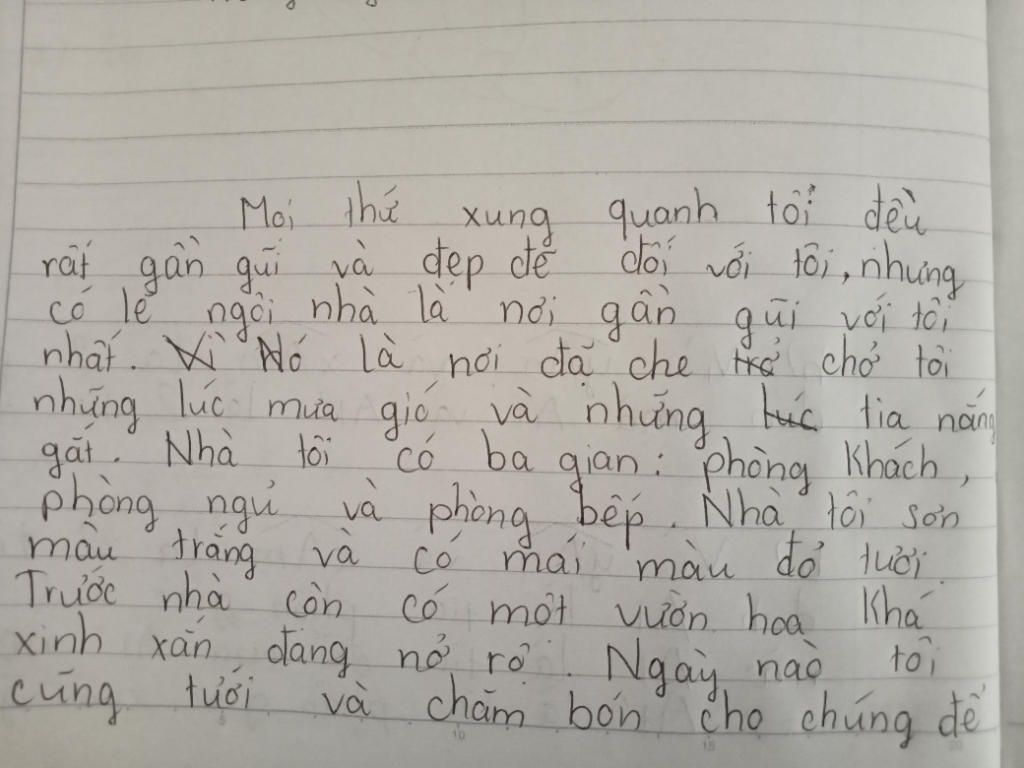 Mọi thứ xung quanh tôi đều
rất gần gũi và đẹp đẽ đối với tôi, nhưng
có lẽ ngôi nhà là nơi gần gũi với tôi
nhất. Vì Nó là nơi đã che trở chở tôi
những lúc mưa gió và những lúc tia nắng
gắt. Nhà tôi có ba gian: phòng khách,
phòng ngủ và phòng bếp. Nhà tôi sơn
màu trắng và có mái màu đỏ tươi.
Trước nhà còn có một vườn hoa khá
xinh xắn đang nở rộ. Ngày nào tôi
cũng tưới và chăm bón cho chúng để